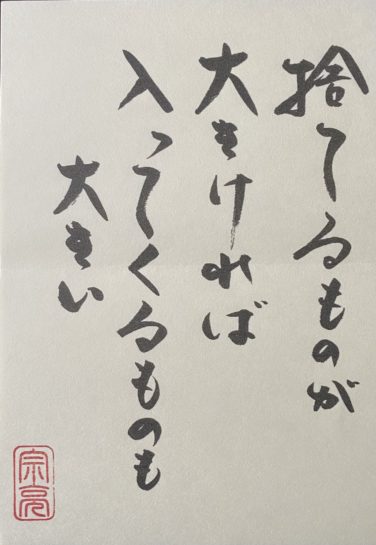 捨てるものが
大きければ
入ってくるものも
大きい
宗亮